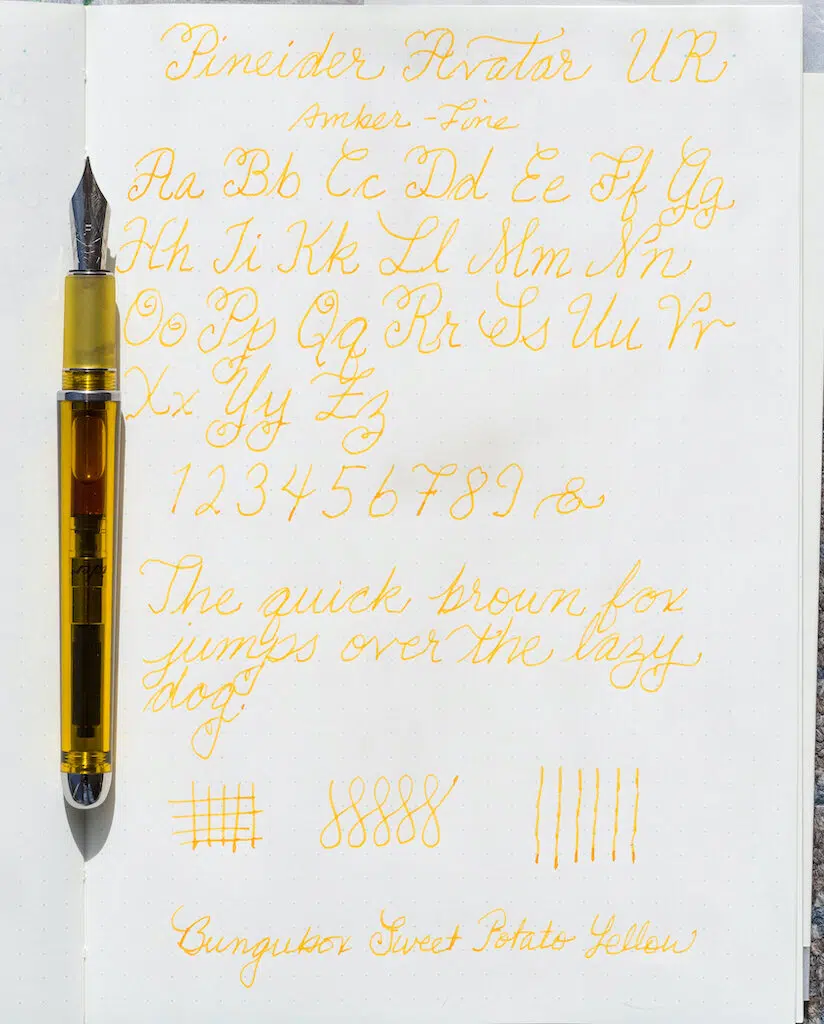 Pineider Avatar UR
Amber - Fine
Aa Bb Cc Dd Ee Ff Gg
Hh Ii Kk Ll Mm Nn
Oo Pp Qq Rr Ss Uu Vv
Xx Yy Zz
1 2 3 4 5 6 7 8 9 &
The quick brown fox
jumps over the lazy
dog.
Bungubox Sweet Potato Yellow